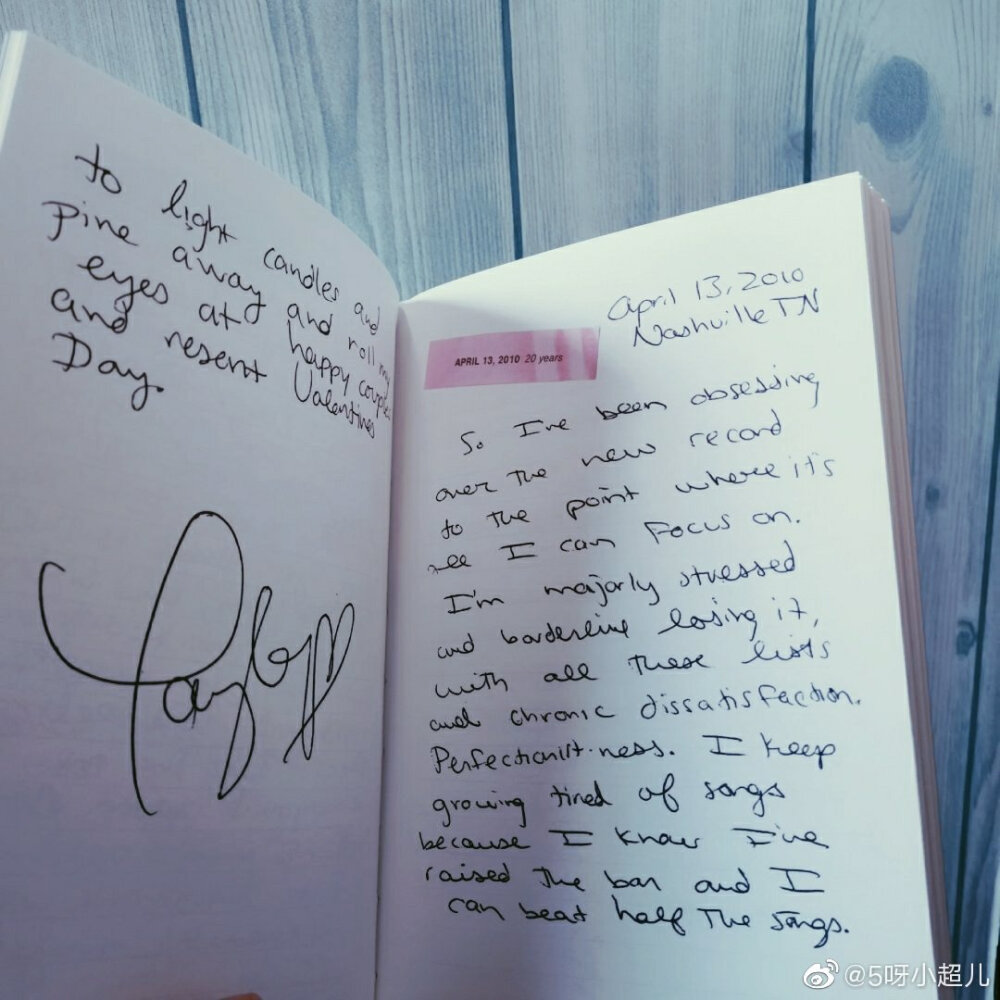 to light candles and
pine away and roll my
eyes at happy couples
and resent Valentines
Day.
Taylor
April 13, 2010
Nashville TN
APRIL 13, 2010 20 years
So I've been obsessing
over the new record
to the point where it's
all I can focus on.
I'm majorly stressed
and borderline losing it,
with all these lists
and chronic dissatisfaction.
Perfectionist-ness. I keep
growing tired of songs
because I know I've
raised the bar and I
can beat half the songs.
@5呀小超儿